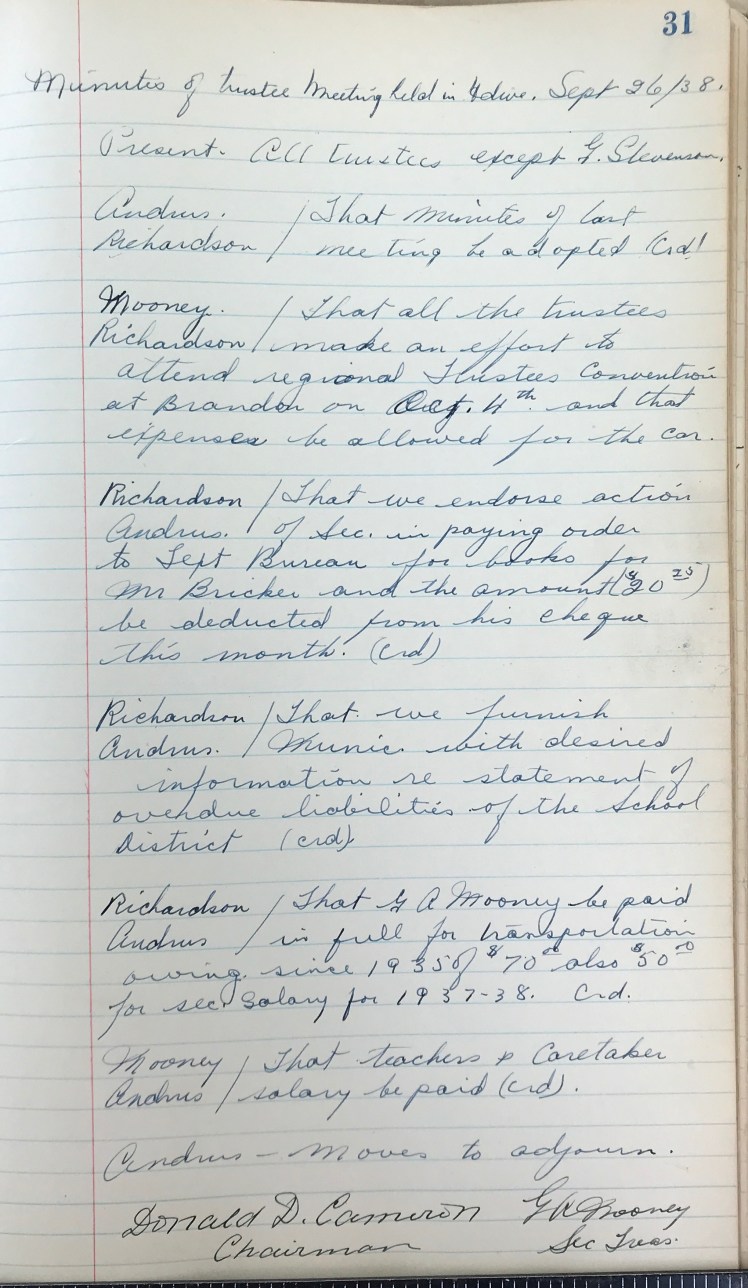 31
Minutes of trustee Meeting held in  Sept 26/38.
Present - All trustees except G. Stevenson.
Andrus. / That minutes of last
Richardson / meeting be adopted (Crd)
Mooney. / That all the trustees
Richardson / make an effort to
attend regional Trustees Convention
at Brandon on Oct. 4th. and that
expenses be allowed for the car.
Richardson / That we endorse action
Andrus. / of Sec. in paying order
to Text Bureau for books for
Mr Bricker and the amount ($20 25)
be deducted from his cheque
this month. (crd)
Richardson / That we furnish
Andrus. / Munic. with desired
information re statement of
overdue liabilities of the School
District (crd).
Richardson / That G A Mooney be paid
Andrus / in full for transportation
owing since 1935 of $70 00 also $50 00
for sec. salary for 1937-38. Crd.
Mooney / That teachers & Caretaker
Andrus / salary be paid (crd).
Andrus - moves to adjourn.
Donald D. Cameron G A Mooney
Chairman Sec Treas.